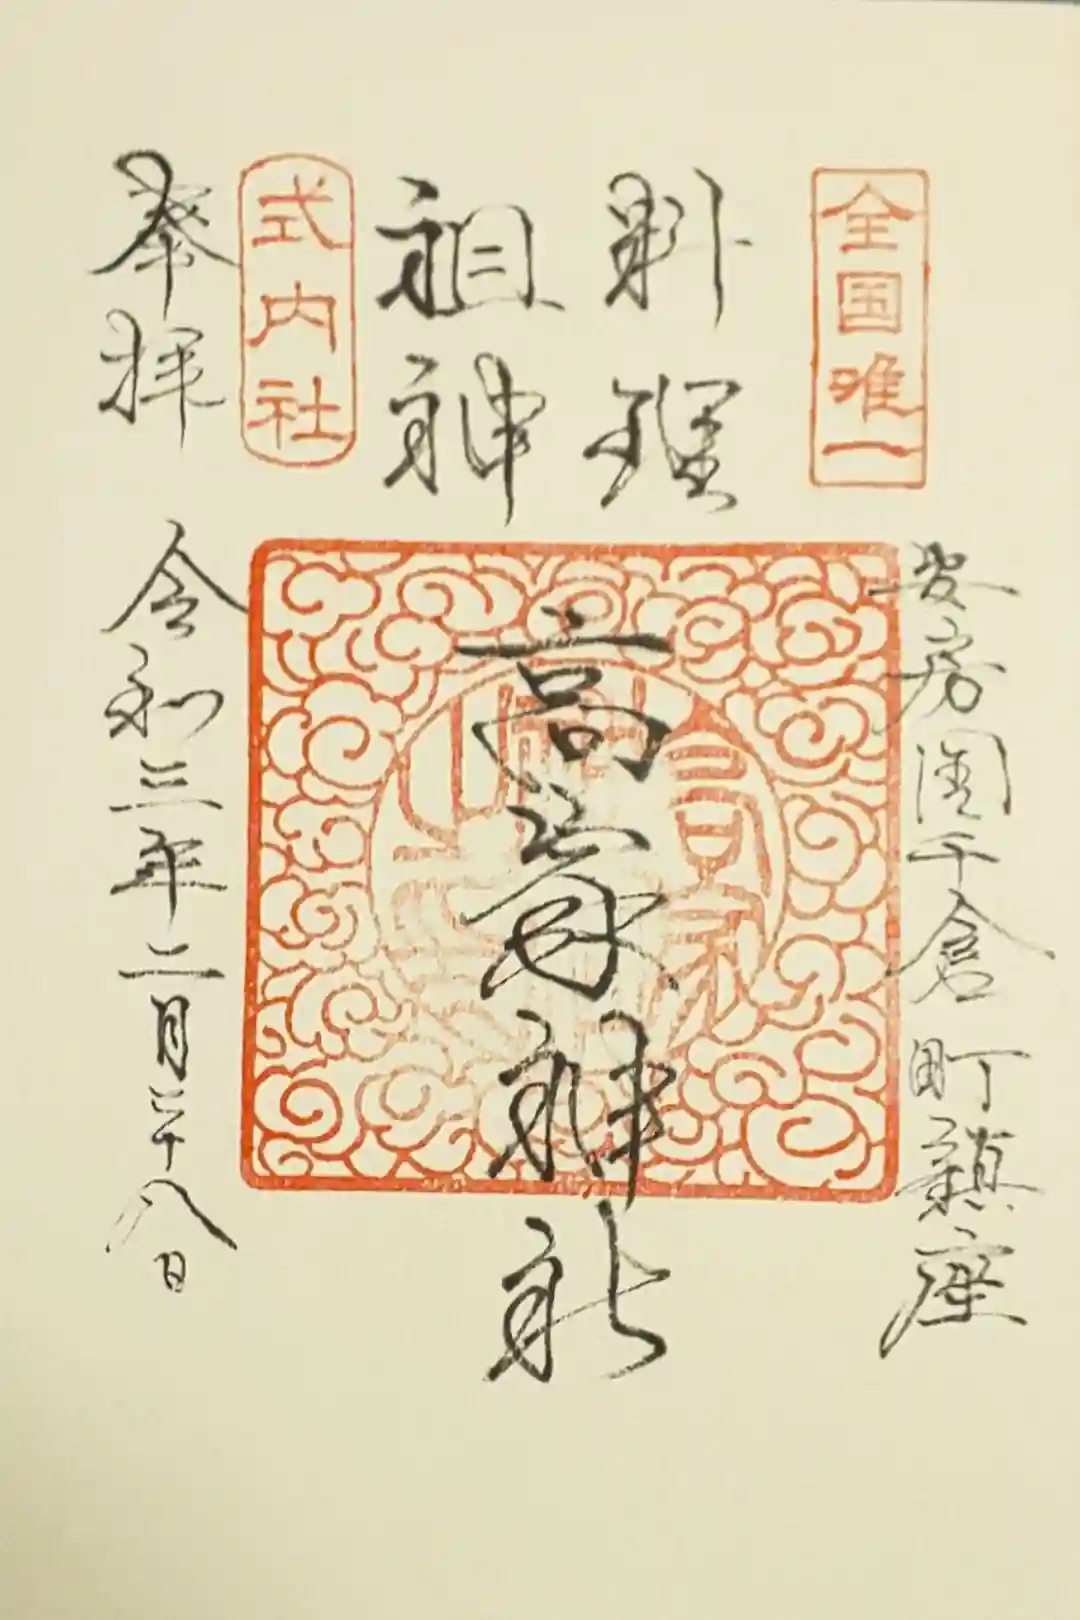 全国唯一
安房国千倉町鎮座
料理
祖神
高家神社
式内社
奉拝
令和三年二月二十八日